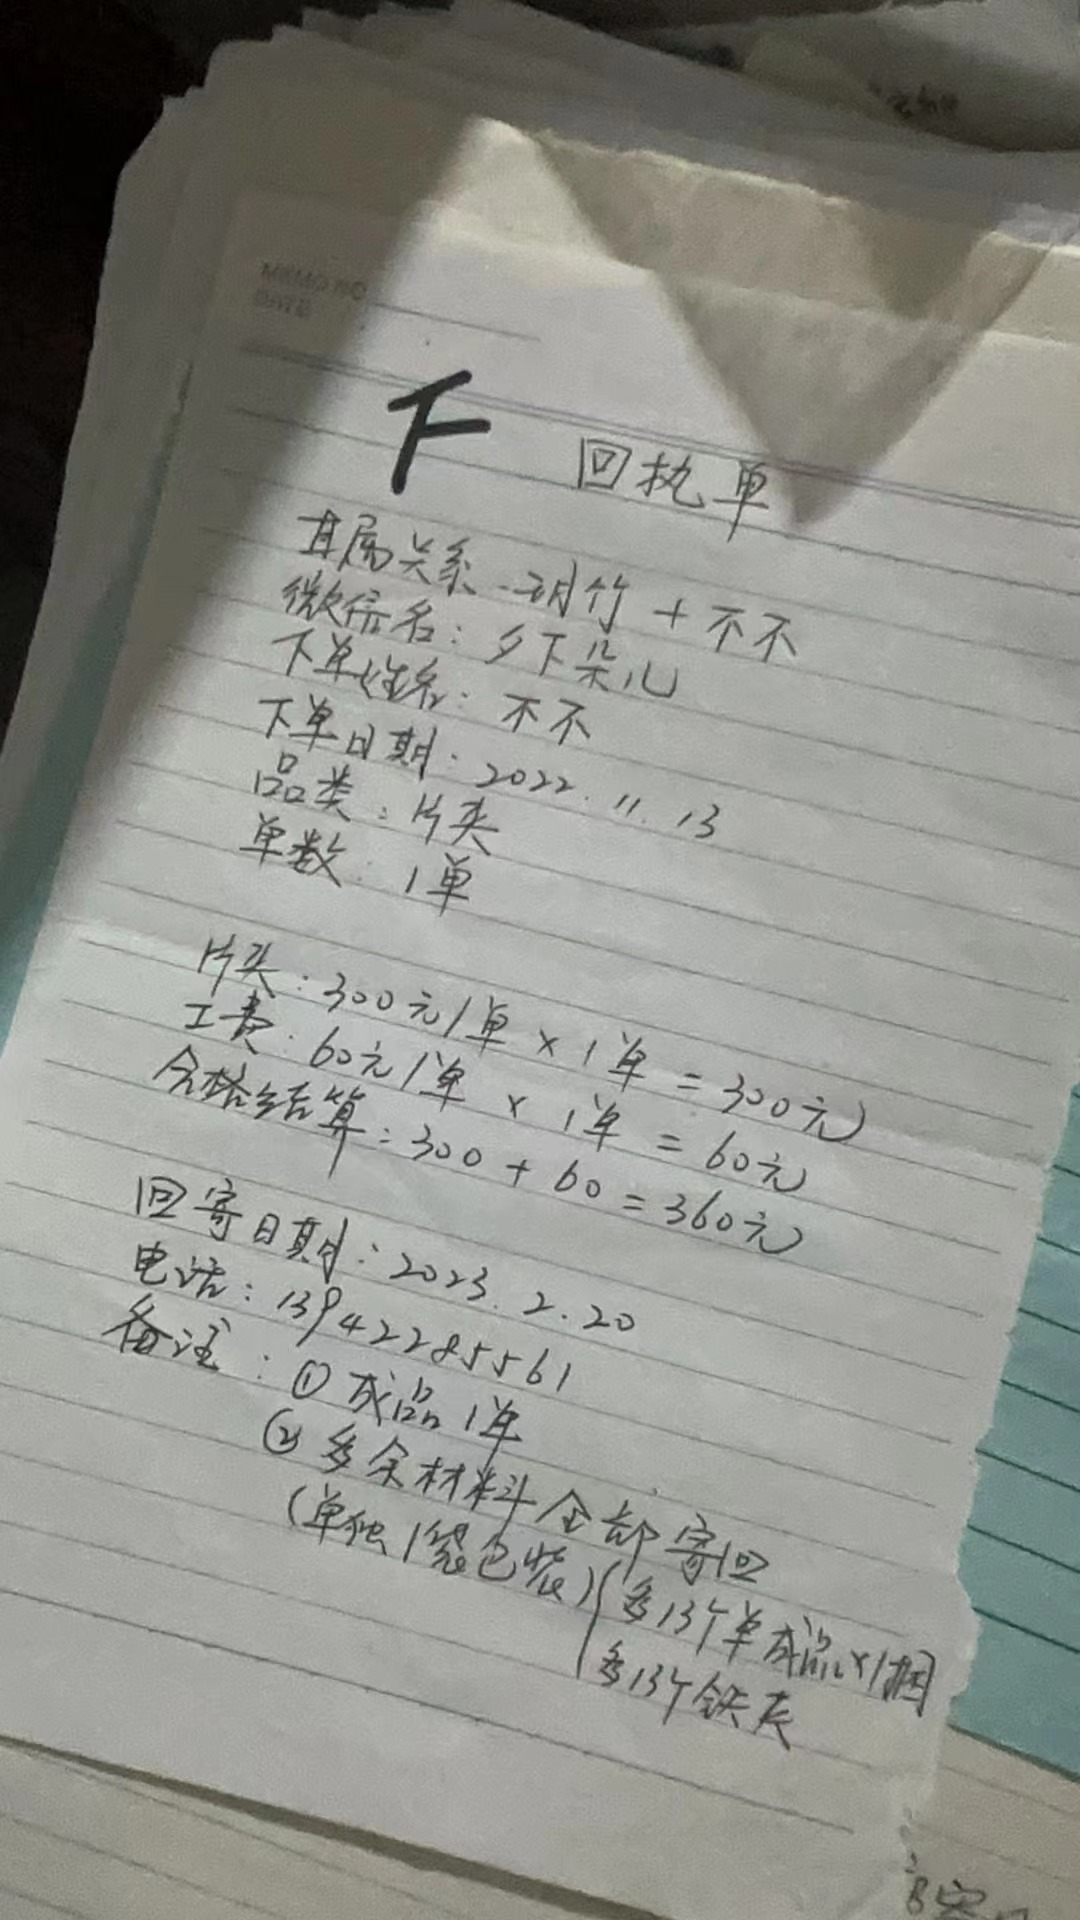 MEMO NO.
DATE
下
回执单
直属关系:玥竹+不不
微信名:夕下朵儿
下单姓名:不不
下单日期:2022.11.13
品类:片夹
单数:1单
片夹:300元/单×1单=300元
工费:60元/单×1单=60元
合格结算:300+60=360元
回寄日期:2023.2.20
电话:13942285561
备注:①成品1单
②多余材料全部寄回
(单独1袋包装)
多13个单成品×1捆
多13个铁夹